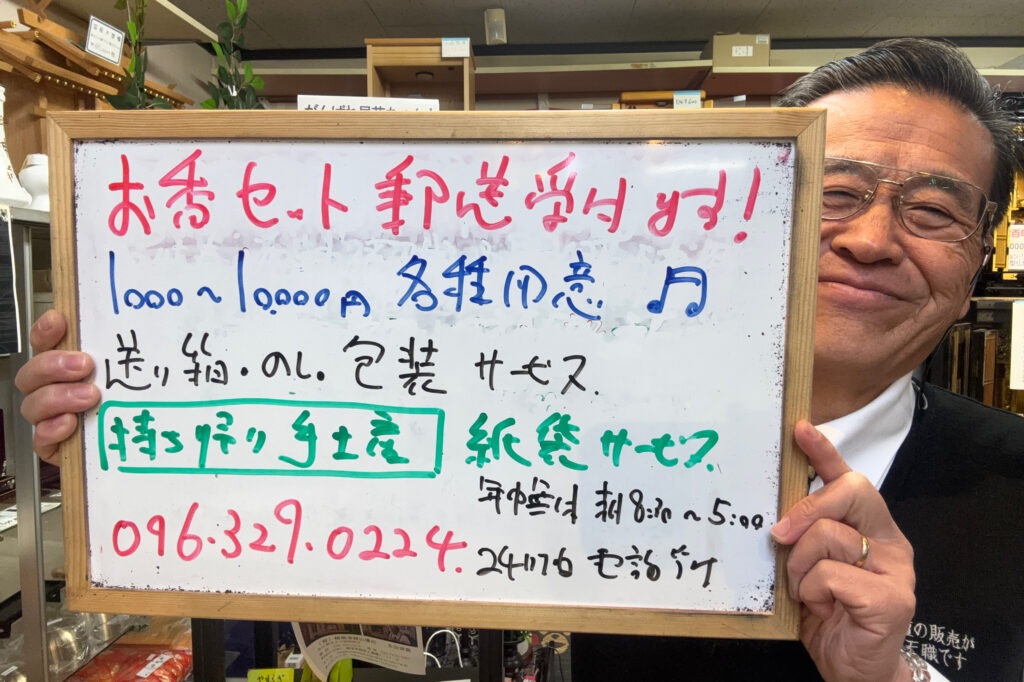 お香セット郵送受付ます!
1000~10,000円 各種用意 ♫
送り箱・のし・包装 サービス.
持ち帰り手土産 紙袋サービス.
年中無休 朝8:30~5:00
096.329.0224.
24時間 電話
の販売が
天職です